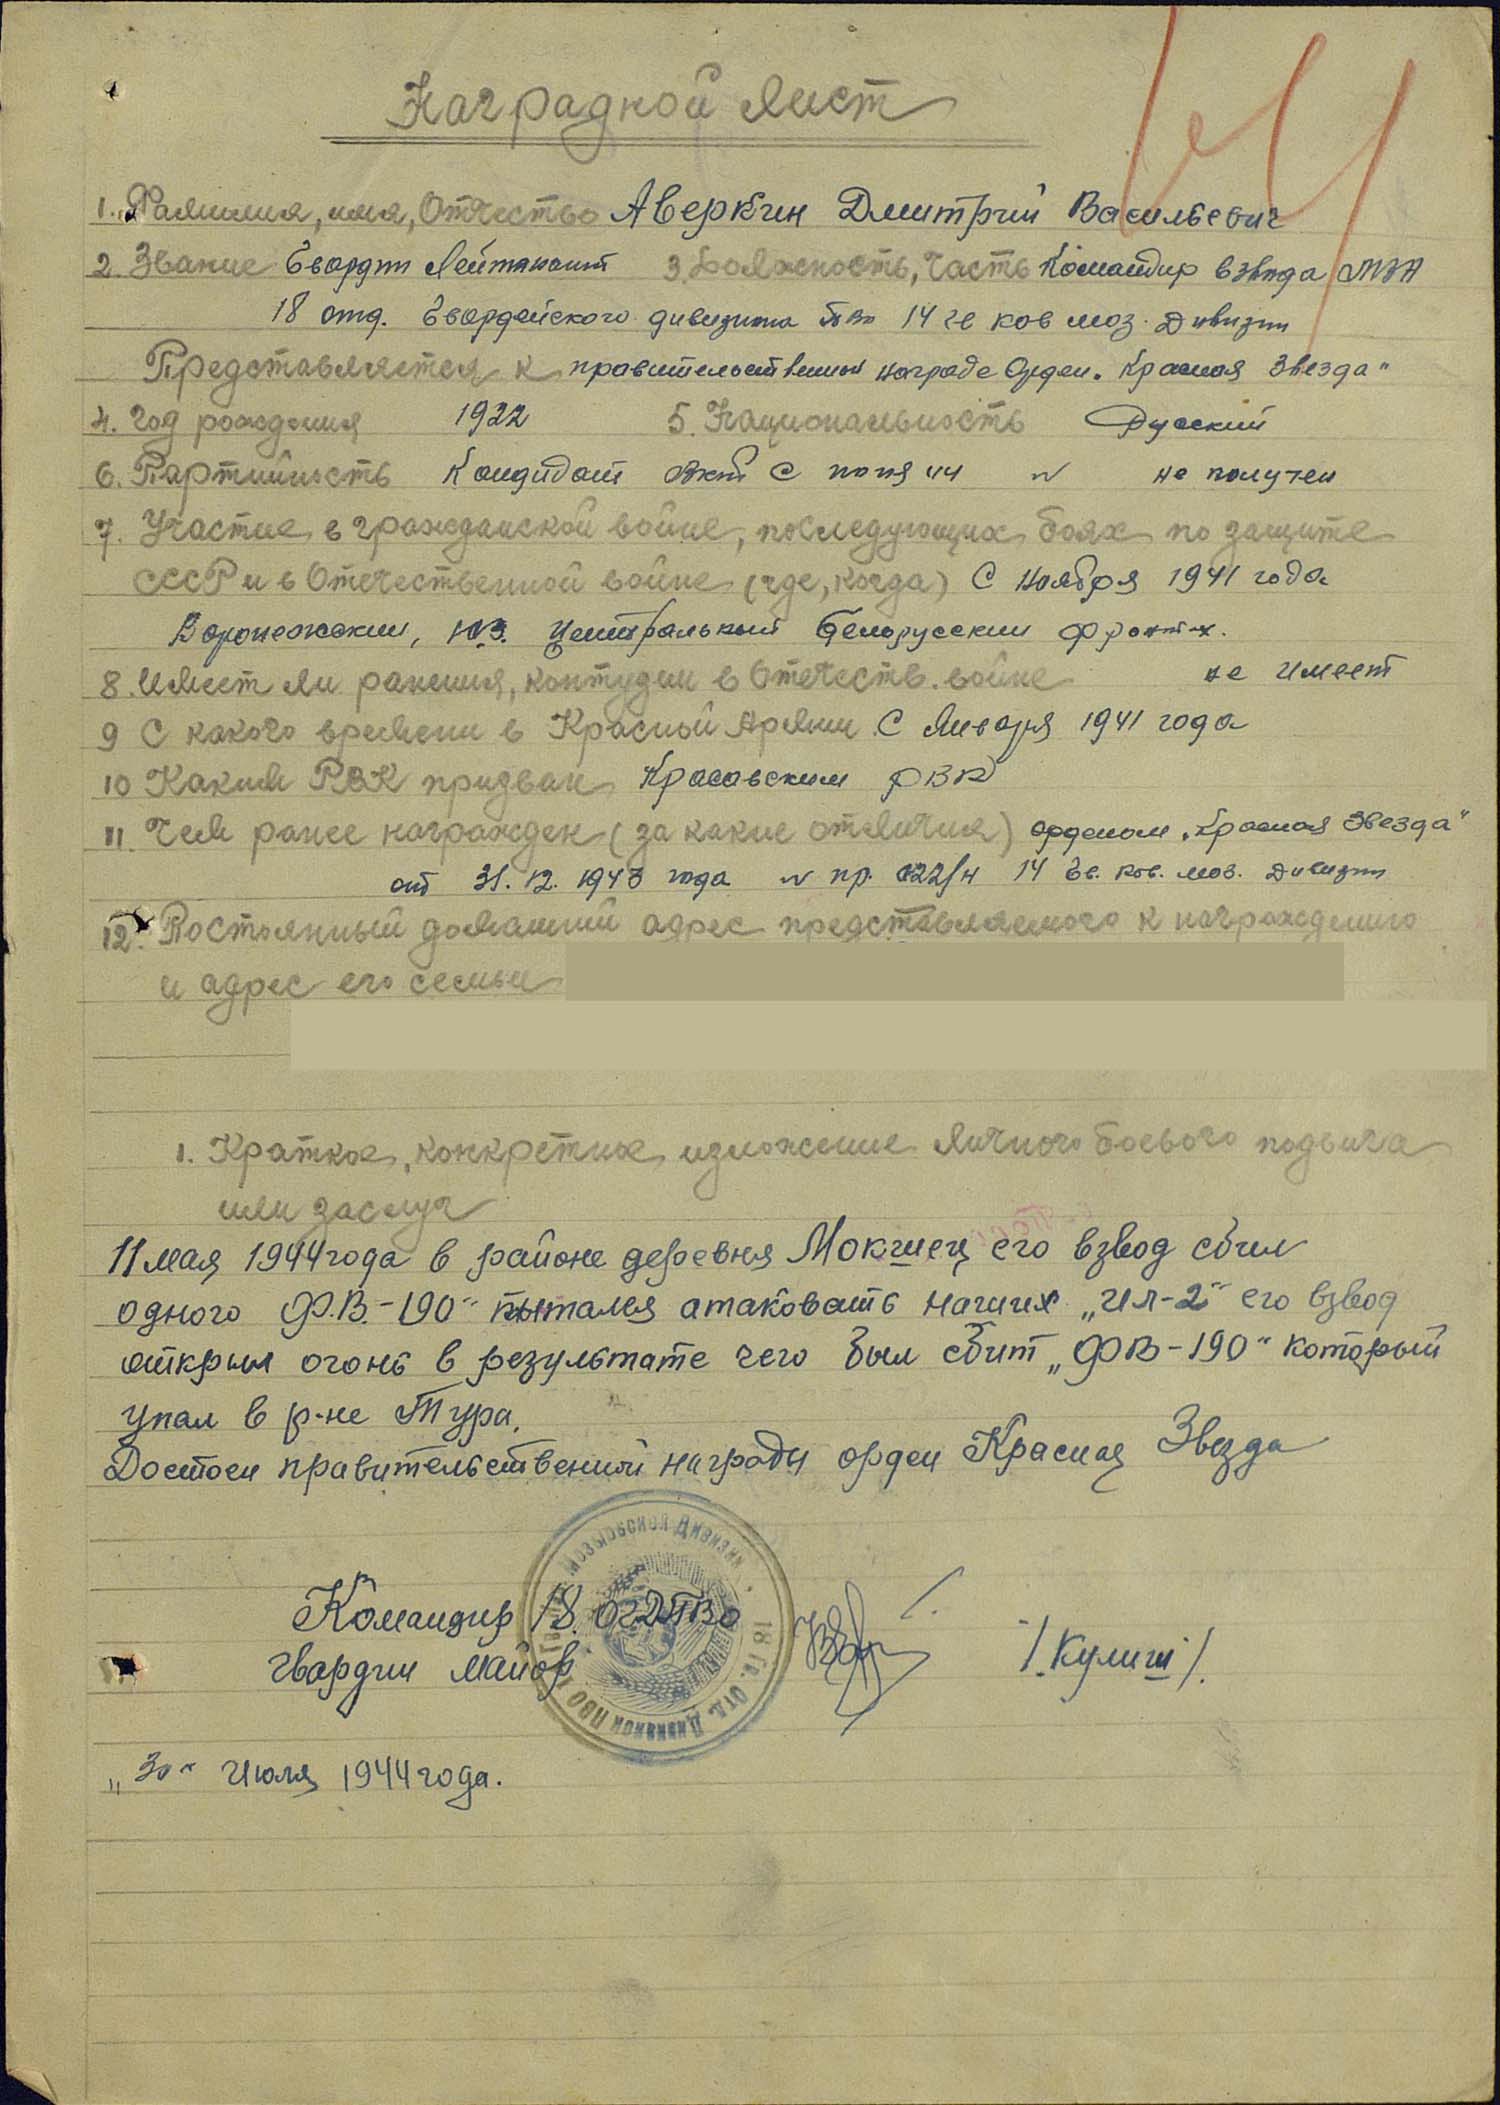 Наградной лист
1. Фамилия, имя, Отчество Аверкин Дмитрий Васильевич
2. Звание Гвардии Лейтенант 3. Должность, часть Командир взвода МЗА
18 отд. Гвардейского дивизиона ПВО 14 гв кав моз. Дивизии
Представляется к правительственной награде Орден „Красная Звезда"
4. Год рождения 1922 5. Национальность Русский
6. Партийность Кандидат ВКП с 44 № не получен
7. Участие в гражданской войне, последующих боях по защите
СССР и в Отечественной войне (где, когда) С Ноября 1941 года
Воронежский, ЮЗ. Центральный Белорусский фронтах.
8. Имеет ли ранения, контузии в Отечеств. войне не имеет
9 С какого времени в Красной Армии С Января 1941 года
10 Каким РВК призван Красавским РВК
11. Чем ранее награжден (за какие отличия) орденом „Красная Звезда"
от 31. 12. 1943 года № пр. 022/н 14 Гв. кав. моз. Дивизии
12. Постоянный домашний адрес представляемого к награждению
и адрес его семьи
1. Краткое, конкретное изложение личного боевого подвига
или заслуг
11 мая 1944 года в районе деревня Мокшец его взвод сбил
одного Ф.В.-190" пытался атаковать наших „Ил-2" его взвод
открыл огонь в результате чего был сбит „ФВ-190" который
упал в р-не Тура.
Достоен правительственной награды орден Красная Звезда
Командир 18. ОГДПВО
гвардии майор /.Кулиш/.
Мозырской Дивизии 18 Гв. Отд. Дивизион ПВО
„30" Июля 1944 года.